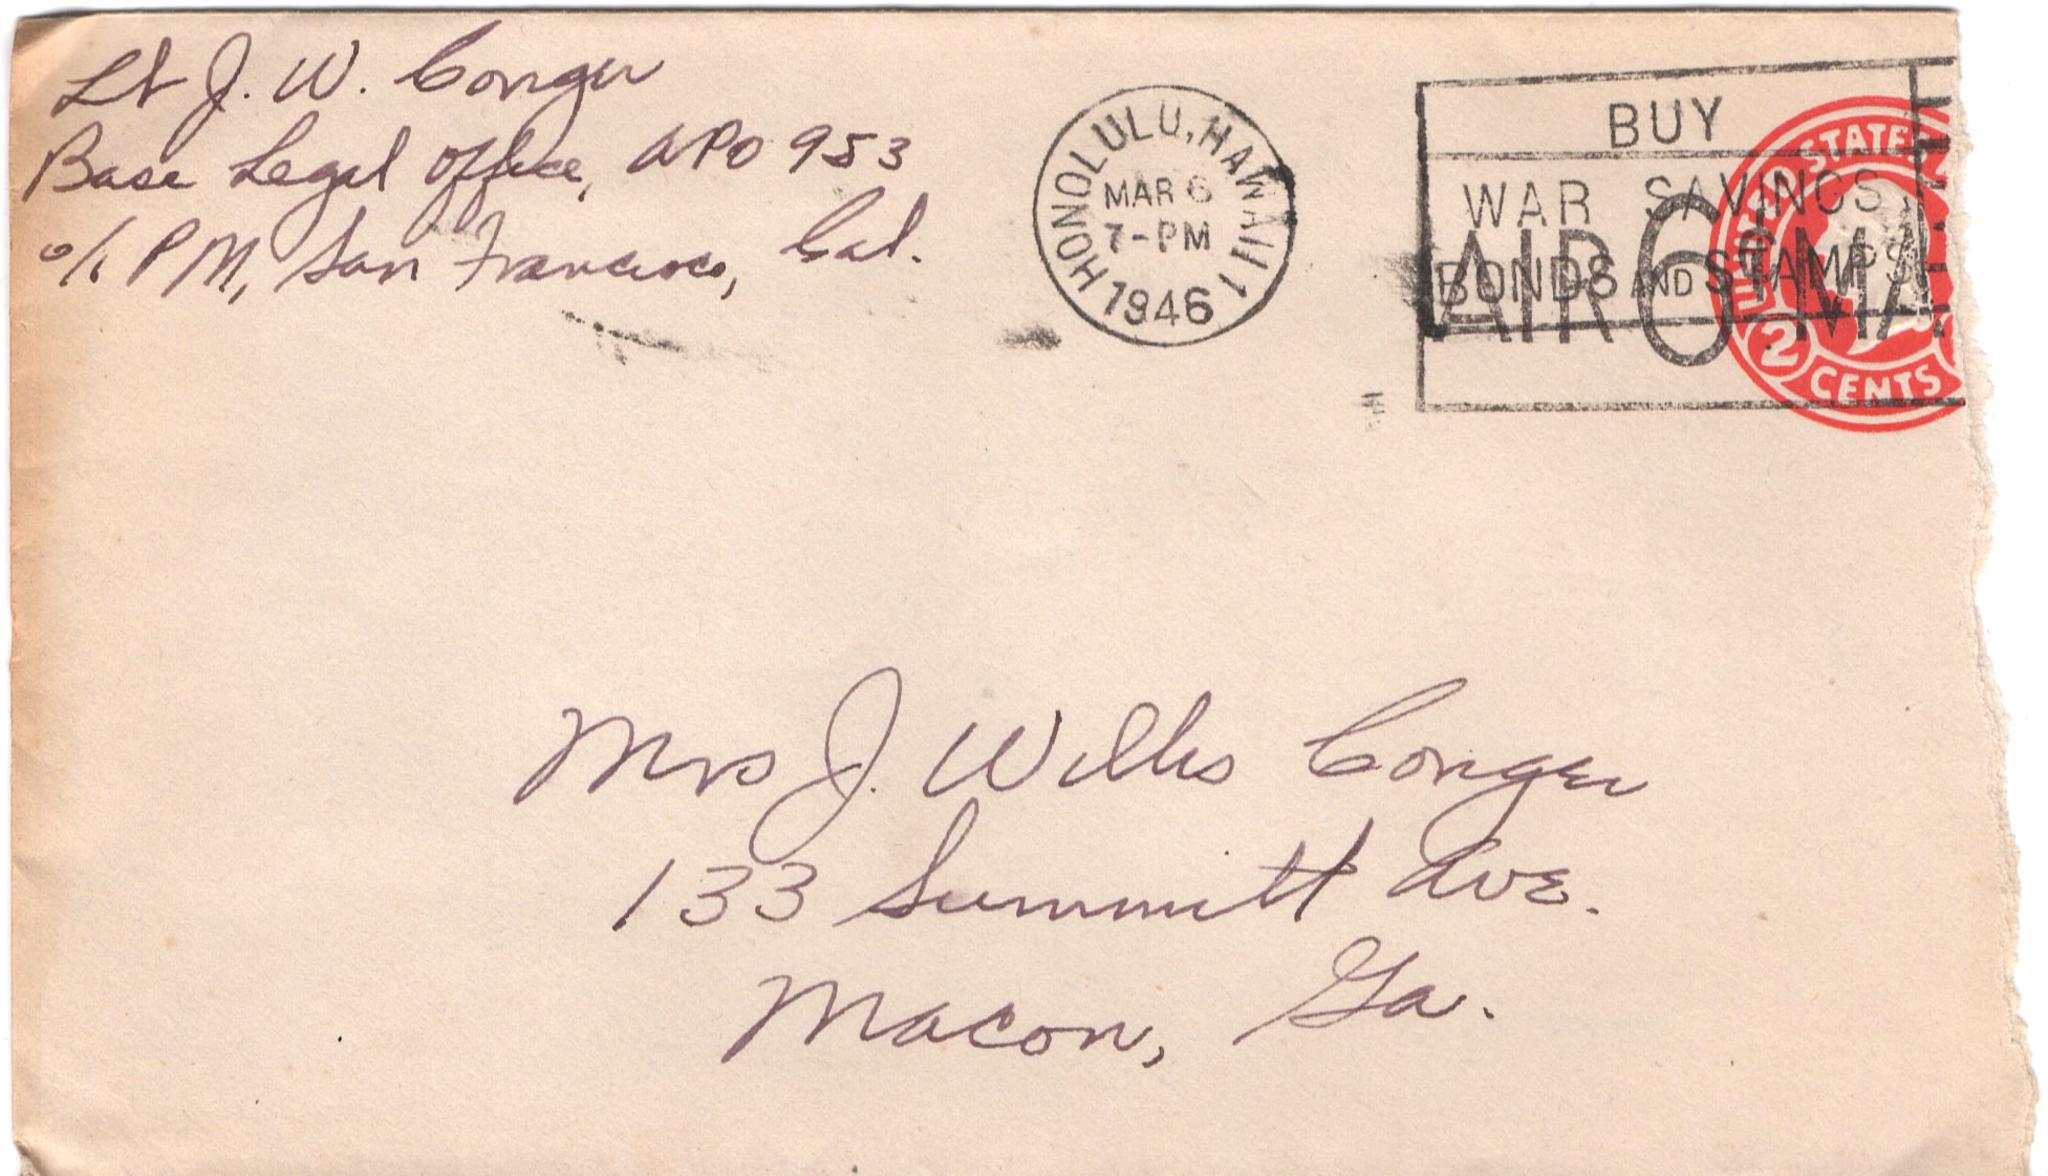 Lt J. W. Conger
Base Legal Office, APO 953
c/o PM, San Francisco, Cal.
HONOLULU, HAWAII 1
MAR 6
7-PM
1946
BUY
WAR SAVINGS
BONDS AND STAMPS
AIR 6¢ MA
UNITED STATES
2 CENTS
Mrs J. Willis Conger
133 Summitt Ave.
Macon, Ga.